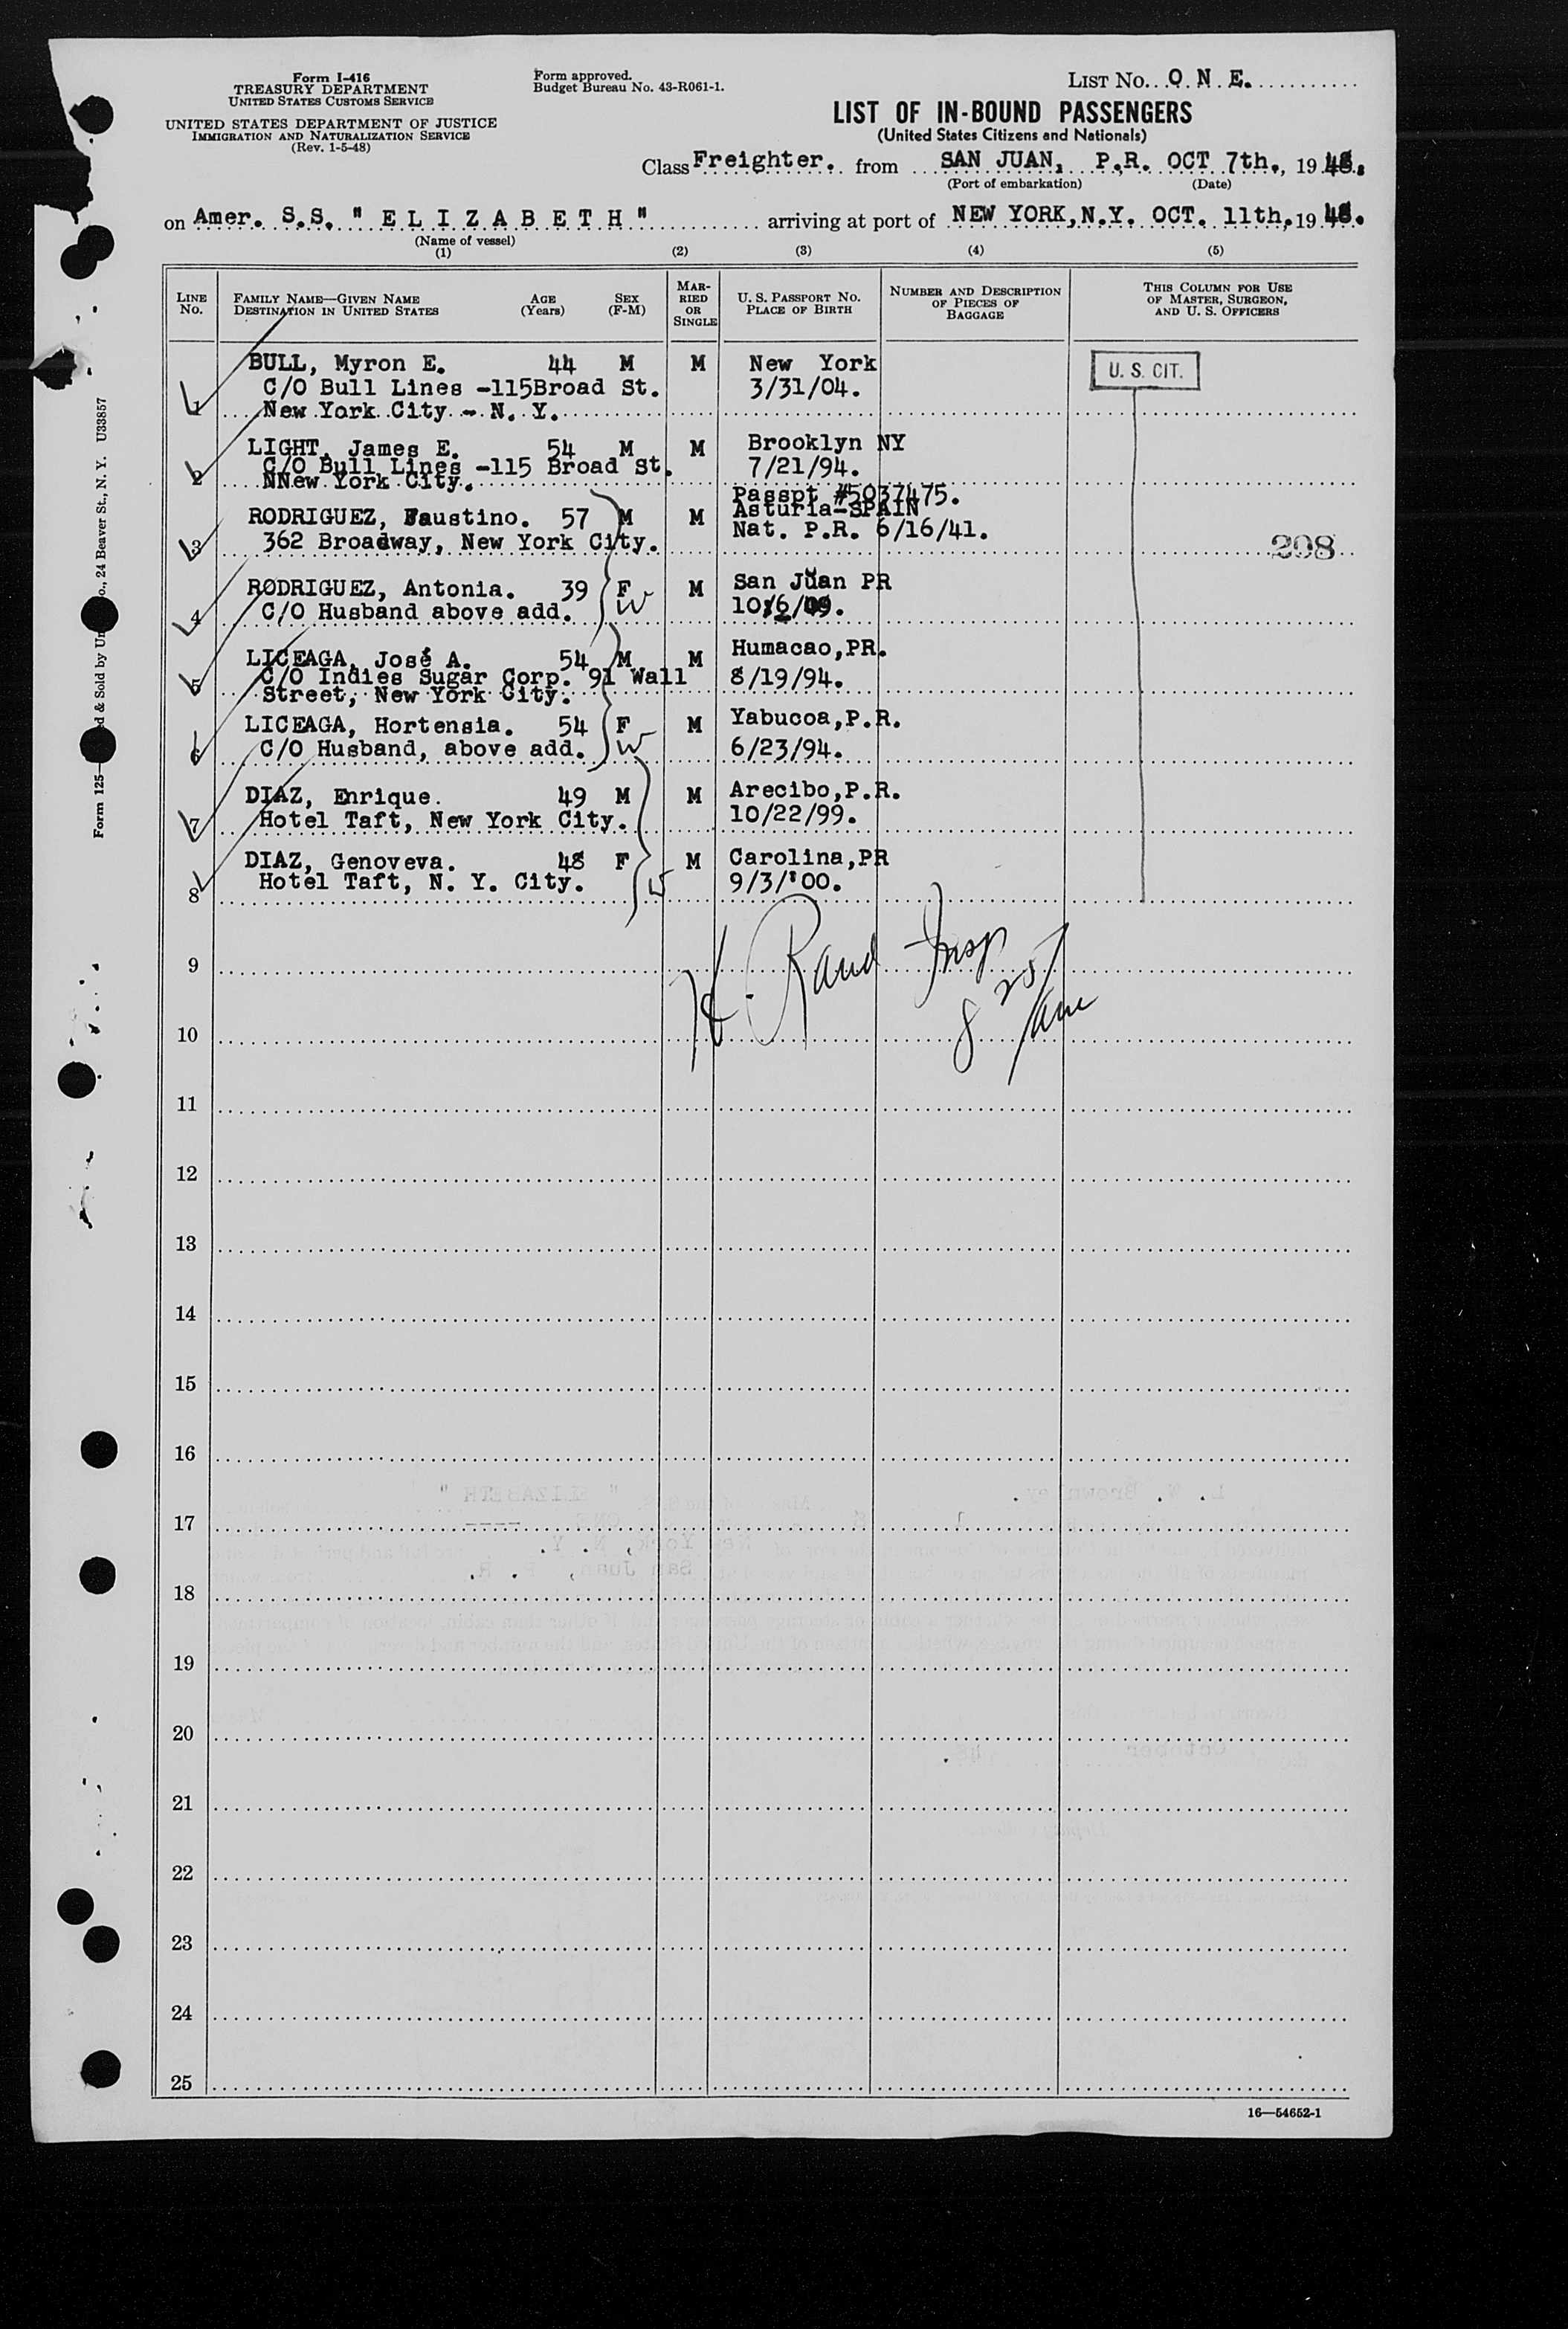 Form I-416
TREASURY DEPARTMENT
UNITED STATES CUSTOMS SERVICE
UNITED STATES DEPARTMENT OF JUSTICE
IMMIGRATION AND NATURALIZATION SERVICE
(Rev. 1-5-48)
Form approved.
Budget Bureau No. 43-R061-1.
LIST NO. O N E.
LIST OF IN-BOUND PASSENGERS
(United States Citizens and Nationals)
Class Freighter. from SAN JUAN, P.R. OCT 7th., 19 48.
(Port of embarkation) (Date)
on Amer. S.S. " E L I Z A B E T H " arriving at port of NEW YORK, N.Y. OCT. 11th, 19 48.
(Name of vessel)
(1) (2) (3) (4) (5)
LINE NO.
FAMILY NAME—GIVEN NAME
DESTINATION IN UNITED STATES
AGE (Years)
SEX (F-M)
MARRIED OR SINGLE
U. S. PASSPORT NO.
PLACE OF BIRTH
NUMBER AND DESCRIPTION OF PIECES OF BAGGAGE
THIS COLUMN FOR USE OF MASTER, SURGEON, AND U. S. OFFICERS
BULL, Myron E. 44 M M New York U. S. CIT.
C/O Bull Lines -115Broad St. 3/31/04.
1 New York City - N. Y.
LIGHT, James E. 54 M M Brooklyn NY
C/O Bull Lines -115 Broad St. 7/21/94.
2 NNew York City.
Passpt #5037475.
Asturia-SPAIN
RODRIGUEZ, Faustino. 57 M M Nat. P.R. 6/16/41.
3 362 Broadway, New York City. 208
RODRIGUEZ, Antonia. 39 F M San Juan PR
4 C/O Husband above add. W 10/6/09.
LICEAGA, José A. 54 M M Humacao,PR.
5 C/O Indies Sugar Corp. 91 Wall 8/19/94.
Street, New York City.
LICEAGA, Hortensia. 54 F M Yabucoa,P.R.
6 C/O Husband, above add. W 6/23/94.
DIAZ, Enrique. 49 M M Arecibo,P.R.
7 Hotel Taft, New York City. 10/22/99.
DIAZ, Genoveva. 48 F M Carolina,PR
8 Hotel Taft, N. Y. City. W 9/3/'00.
H. Rand Insp
8 25/am
9
10
11
12
13
14
15
16
17
18
19
20
21
22
23
24
25
16—54652-1
Form 125— d & Sold by Un o., 24 Beaver St., N. Y. U33857